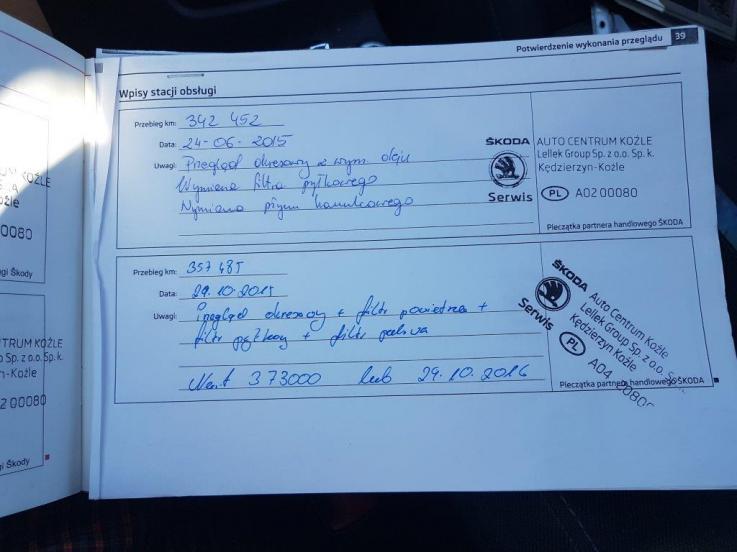 Potwierdzenie wykonania przeglądu 39
Wpisy stacji obsługi
Przebieg km: 342 452
Data: 24-06-2015
Uwagi: Przegląd okresowy z wym. oleju
Wymiana filtra pyłkowego
Wymiana płynu hamulcowego
ŠKODA
Serwis
AUTO CENTRUM KOŹLE
Lellek Group Sp. z o.o. Sp. k.
Kędzierzyn-Koźle
PL A02 00080
Pieczątka partnera handlowego ŠKODA
Przebieg km: 357 485
Data: 29.10.2015
Uwagi: Przegląd okresowy + filtr powietrza +
filtr pyłkowy + filtr paliwa
Next 373000 lub 29.10.2016
ŠKODA
Serwis
Auto Centrum Koźle
Lellek Group Sp. z o.o.
Kędzierzyn Koźle
PL A04
Pieczątka partnera handlowego ŠKODA
KOŹLE
Koźle
00080
gi Škody
TRUM KOŹLE
Sp. z o.o. Sp. k.
n-Koźle
2 00080
gi Škody